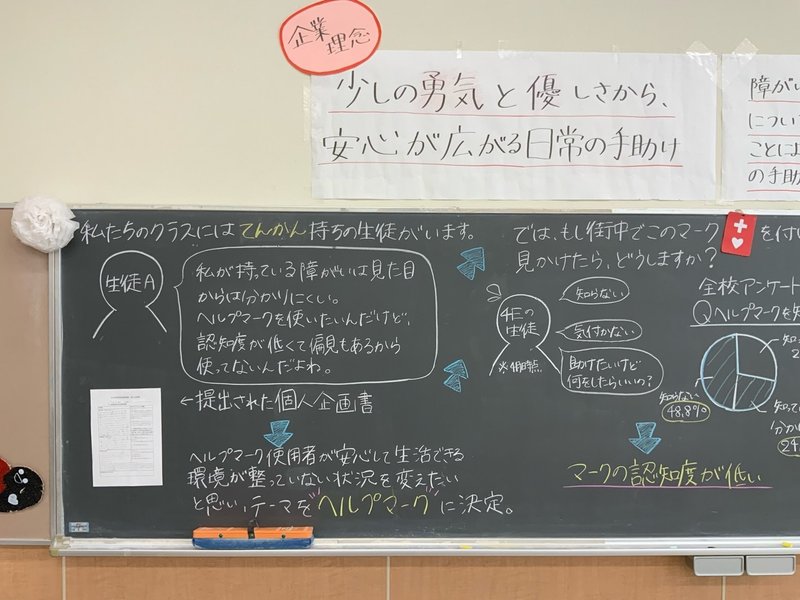 企業
理念
少しの勇気と優しさから、
安心が広がる日常の手助け
障がい
につい
ことによ
の手助
私たちのクラスにはてんかん持ちの生徒がいます。
生徒A
私が持っている障がいは見た目
からは分かりにくい。
ヘルプマークを使いたいんだけど、
認知度が低くて偏見もあるから
使ってないんだよね。
←提出された個人企画書
ヘルプマーク使用者が安心して生活できる
環境が整っていない状況を変えたい
と思い、テーマを"ヘルプマーク"に決定。
では、もし街中でこのマーク
を付け
見かけたら、どうしますか?
の生徒
知らない
気付かない
助けたいけど
何をしたらいいの?
全校アンケート
Qヘルプマークを知
知らない
48.8%
知って
分か
24
マークの認知度が低い